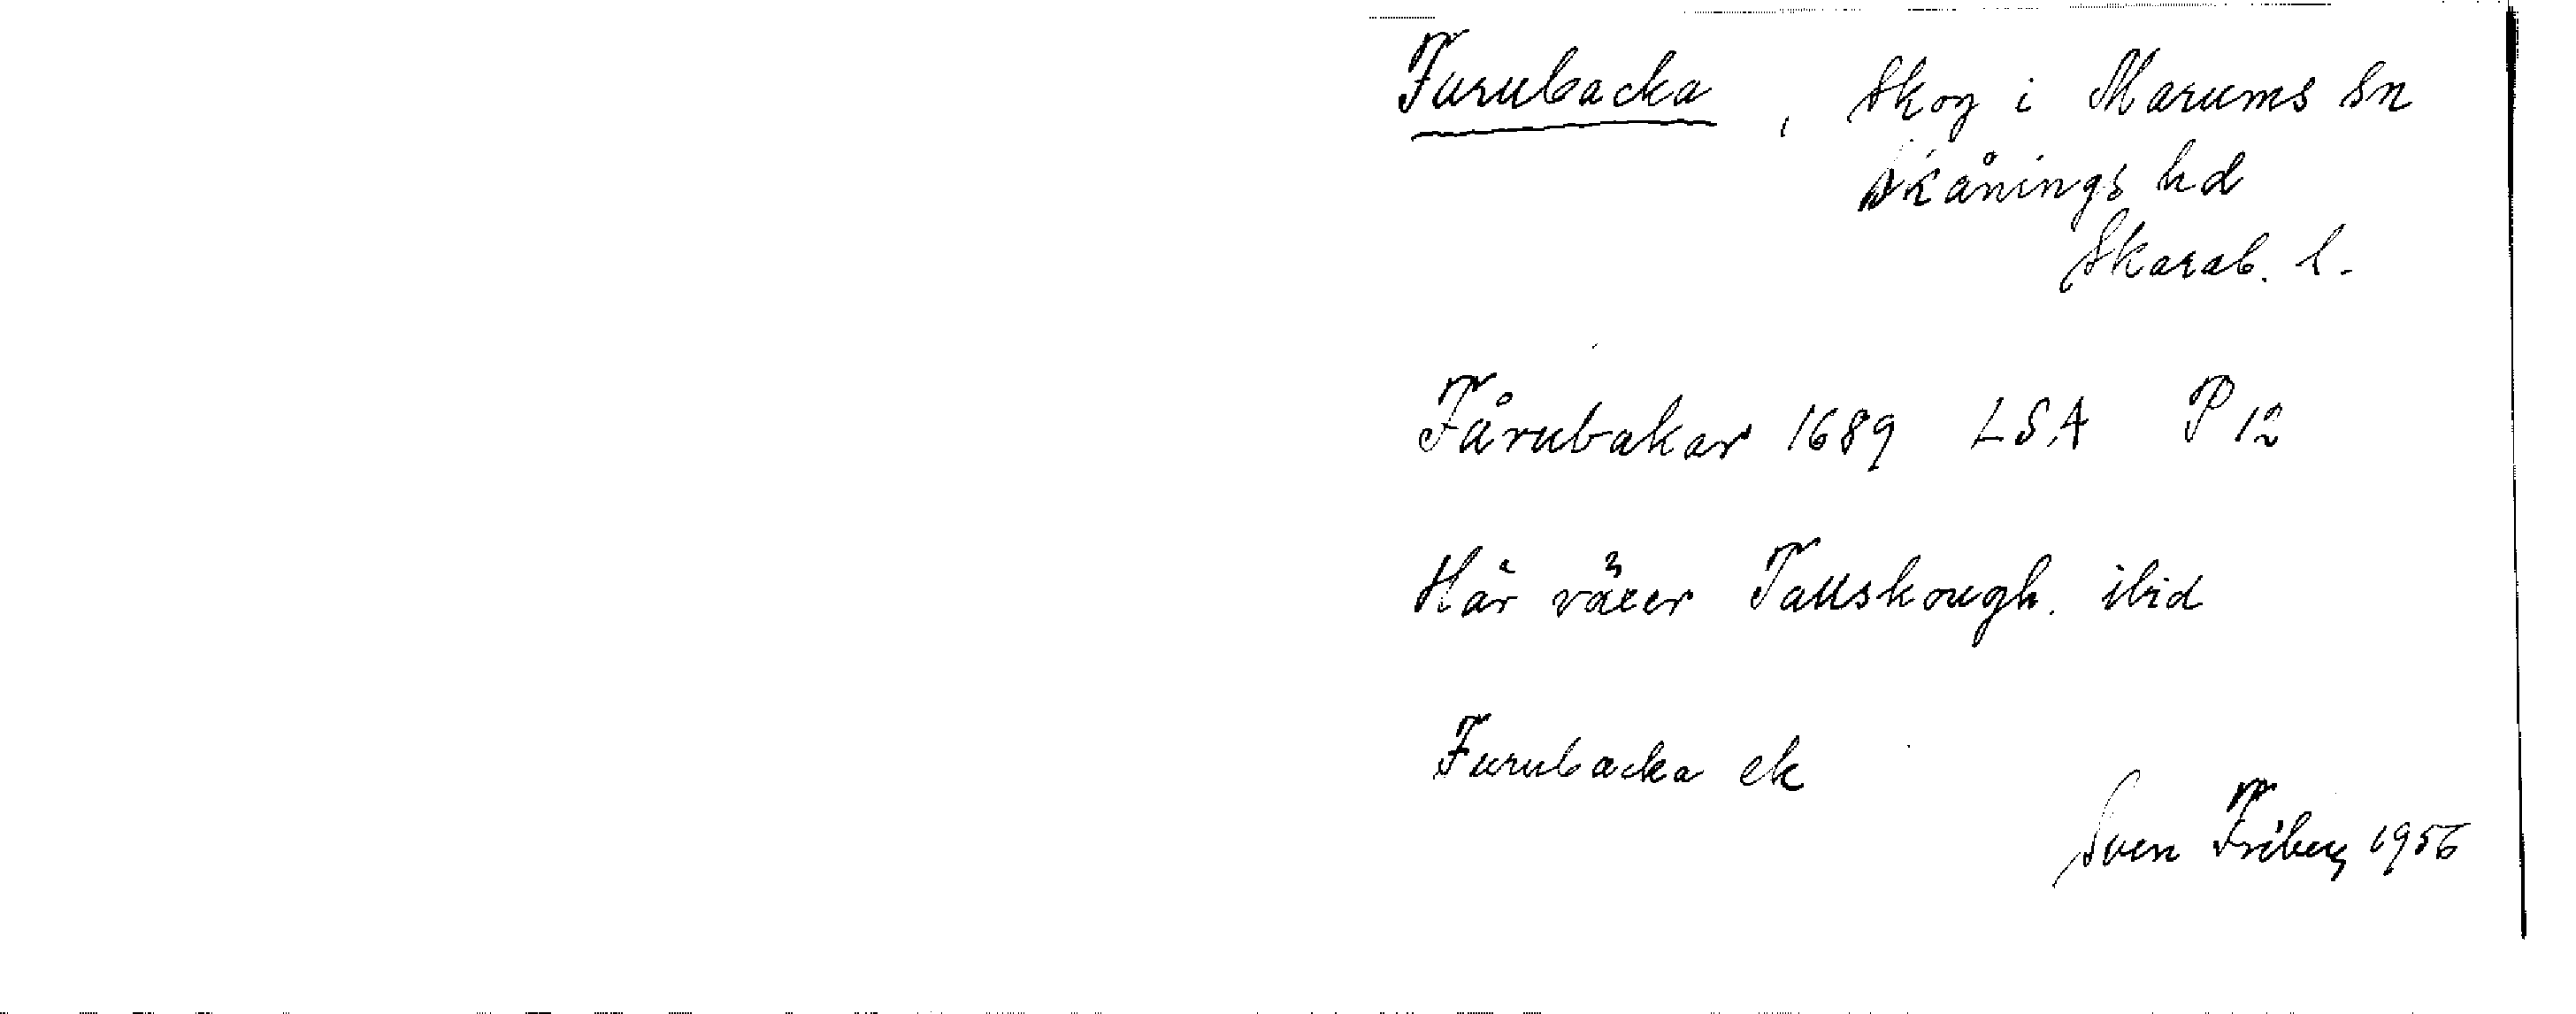 Furubacka, Skog i Marums sn
Skånings hd
Skarab. l.
Fårubakar 1689 LSA P 12
Här växer Tallskough. ibid
Furubacka ek
Sven Friberg 1956